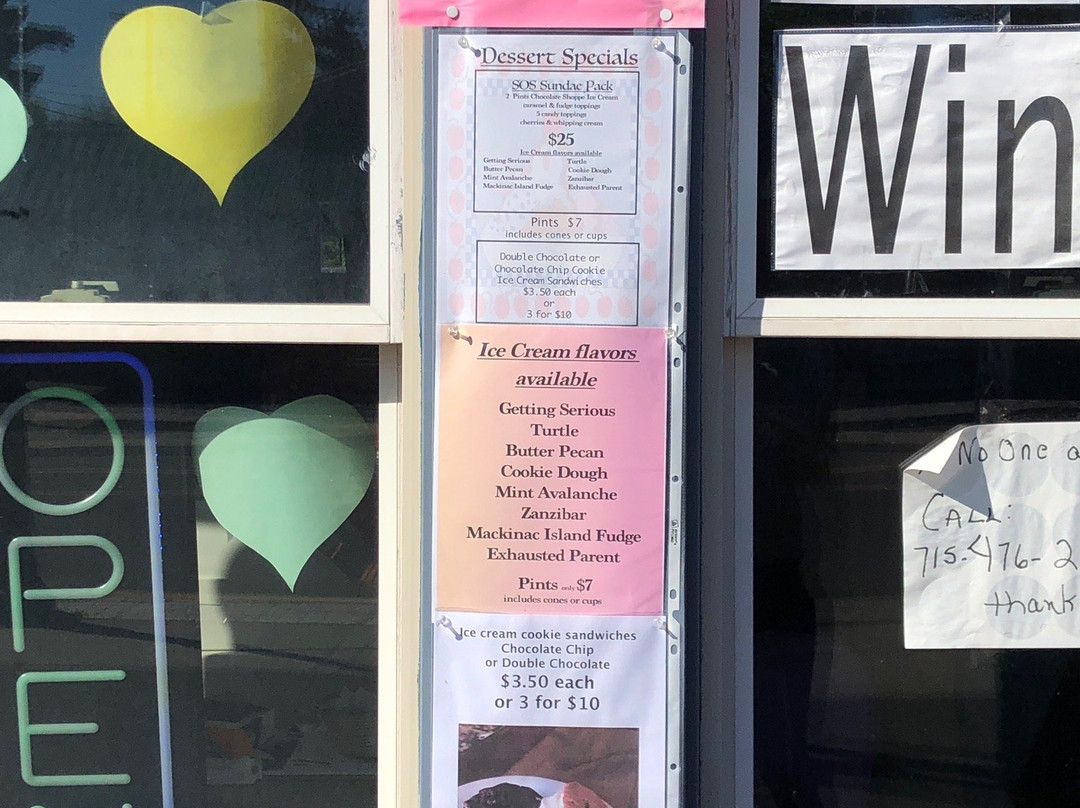 Dessert Specials
SOS Sundae Pack
2 Pints Chocolate Shoppe Ice Cream
caramel & fudge toppings
5 candy toppings
cherries & whipping cream
$25
Ice Cream flavors available
Getting Serious Turtle
Butter Pecan Cookie Dough
Mint Avalanche Zanzibar
Mackinac Island Fudge Exhausted Parent
Pints $7
includes cones or cups
Double Chocolate or
Chocolate Chip Cookie
Ice Cream Sandwiches
$3.50 each
or
3 for $10
Ice Cream flavors
available
Getting Serious
Turtle
Butter Pecan
Cookie Dough
Mint Avalanche
Zanzibar
Mackinac Island Fudge
Exhausted Parent
Pints only $7
includes cones or cups
Ice cream cookie sandwiches
Chocolate Chip
or Double Chocolate
$3.50 each
or 3 for $10
OPE
Win
No One a
CALL:
715-476-2
thank